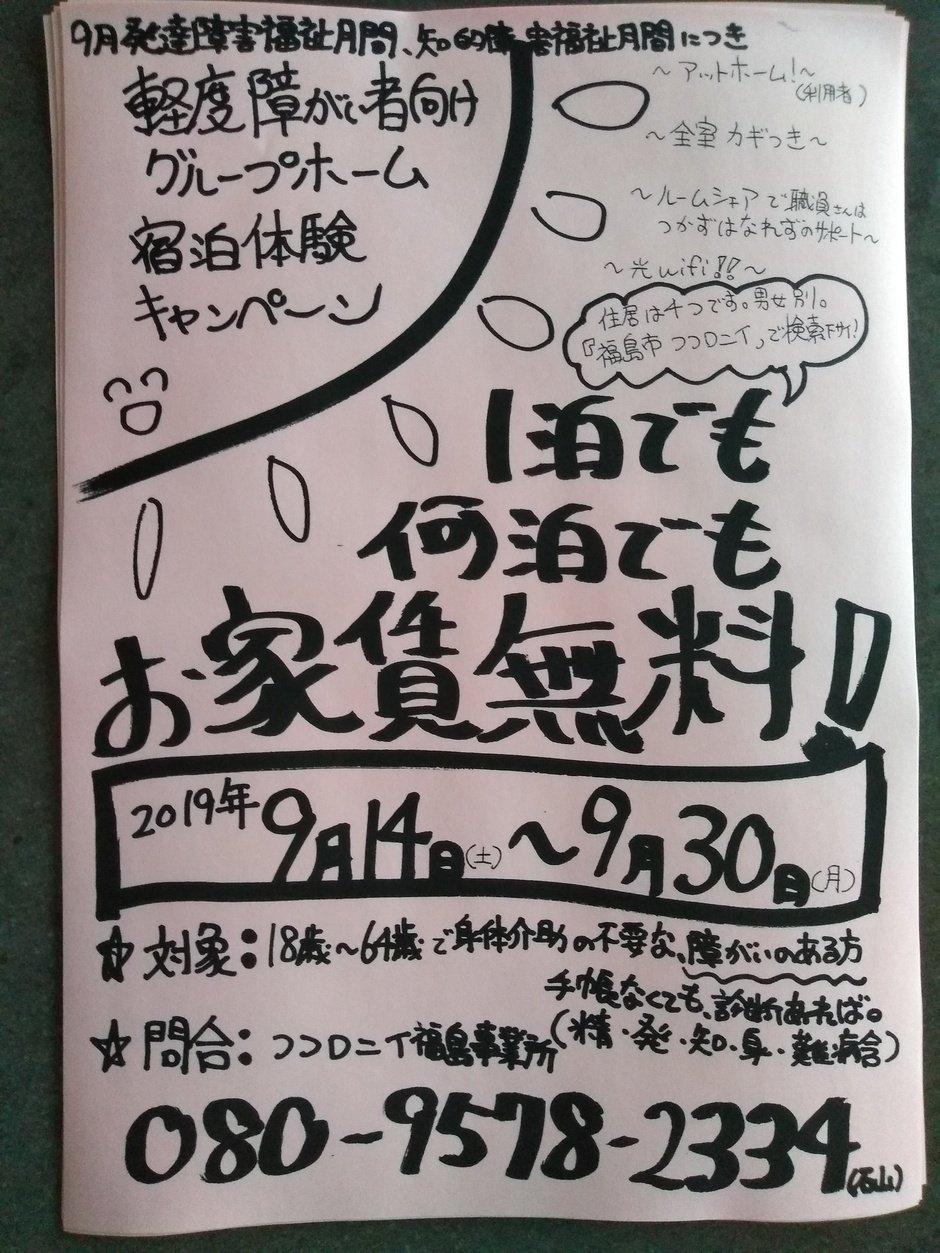 9月発達障害福祉月間、知的障害福祉月間につき
軽度障がい者向け
グループホーム
宿泊体験
キャンペーン
～アットホーム!～
(利用者)
～全室カギつき～
～ルームシェアで職員さんは
つかずはなれずのサポート～
～光wifi!!～
住居は十つです。男女別。
『福島市 ココロニイ』で検索下サイ!
1泊でも
何泊でも
お家賃無料!
2019年9月14日(土)～9月30日(月)
☆対象:18歳～64歳で身体介助の不要な、障がいのある方
手帳なくても、診断あれば。
(精・発・知・身・難病含)
☆問合:ココロニイ福島事業所
080-9578-2334
(石山)